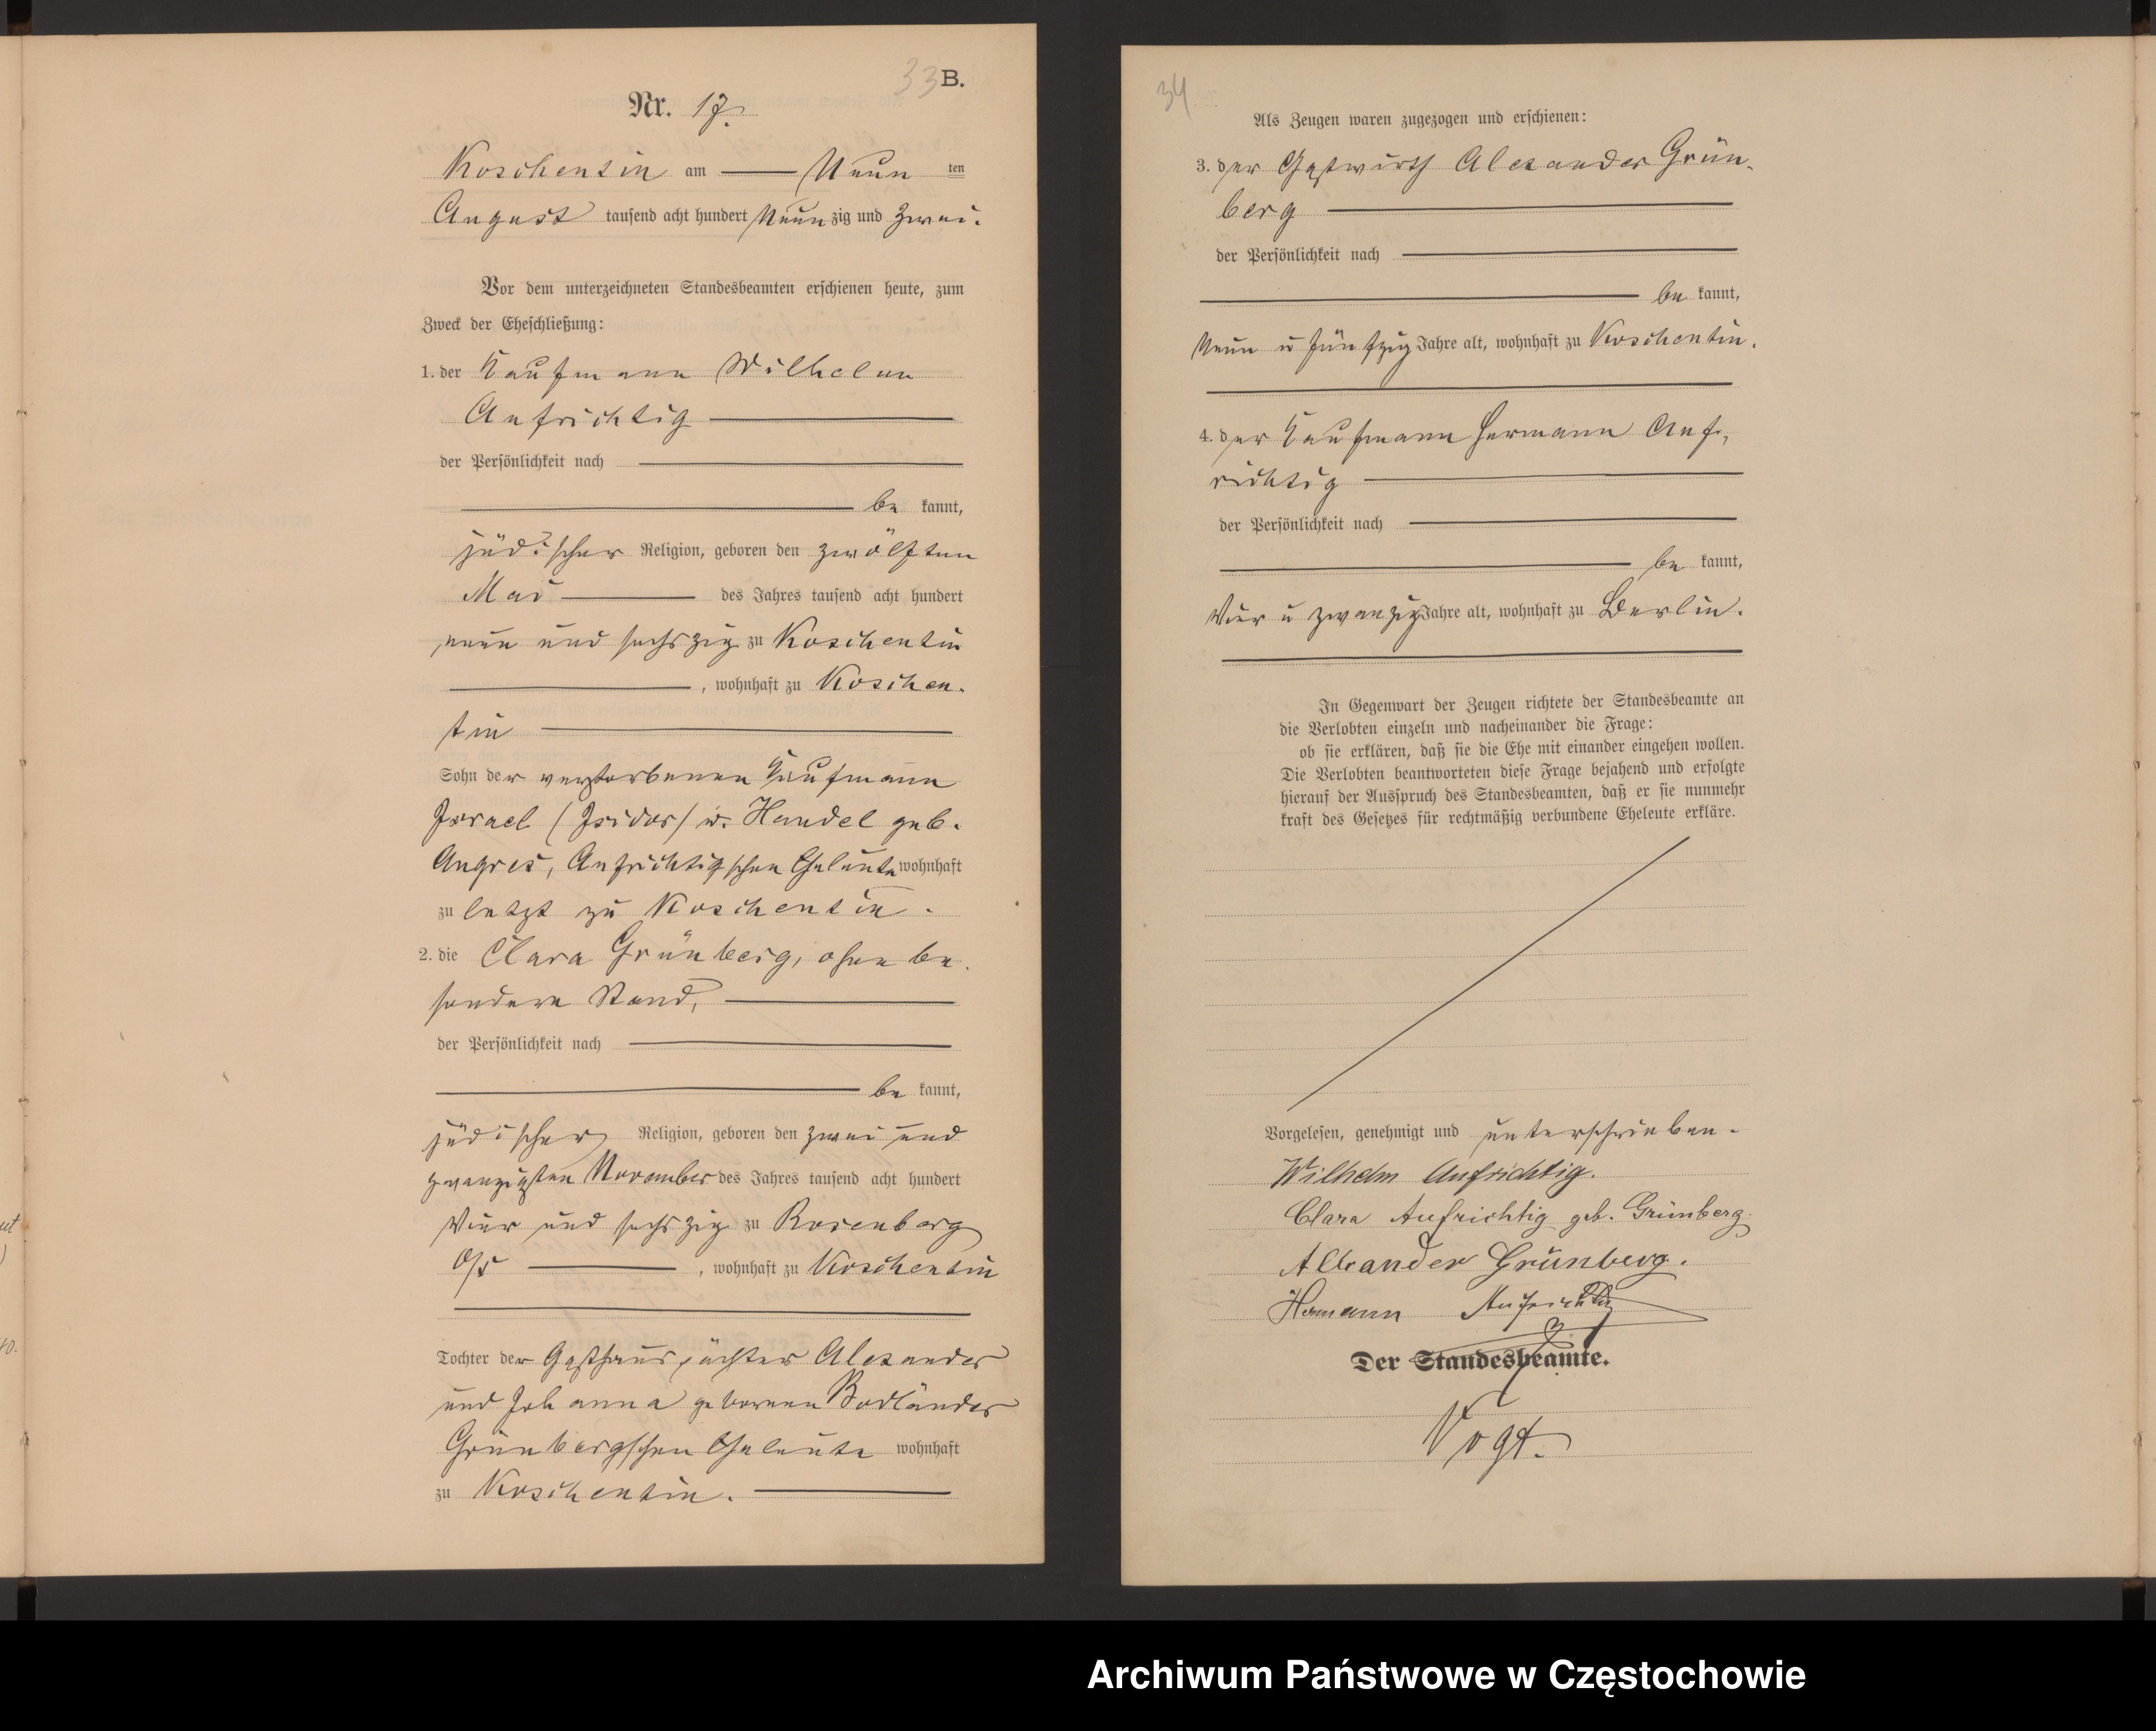 33 B.
Nr. 17.
Koschentin am Neun ten
August tausend acht hundert Neunzig und Zwei.
Vor dem unterzeichneten Standesbeamten erschienen heute, zum
Zweck der Eheschließung:
1. der Kaufmann Wilhelm
Aufrichtig
der Persönlichkeit nach
be kannt,
jüdischer Religion, geboren den zwölften
Mai des Jahres tausend acht hundert
neun und sechszig zu Koschentin
, wohnhaft zu Koschen-
tin
Sohn der verstorbenen Kaufmann
Israel (Isidor) u. Handel geb.
Angres, Aufrichtigschen Eheleute wohnhaft
zu letzt zu Koschentin.
2. die Clara Grünberg, ohne be-
sondern Stand,
der Persönlichkeit nach
be kannt,
jüdischer Religion, geboren den zwei und
zwanzigsten November des Jahres tausend acht hundert
Vier und sechszig zu Rosenberg
O/S , wohnhaft zu Koschentin
Tochter der Gasthauspächter Alexander
und Johanna geborenen Bodländer
Grünbergschen Eheleute wohnhaft
zu Koschentin.
34
Als Zeugen waren zugezogen und erschienen:
3. der Gastwirth Alexander Grün-
berg
der Persönlichkeit nach
be kannt,
Neun u fünfzig Jahre alt, wohnhaft zu Koschentin.
4. der Kaufmann Hermann Auf-
richtig
der Persönlichkeit nach
be kannt,
Vier u zwanzig Jahre alt, wohnhaft zu Berlin.
In Gegenwart der Zeugen richtete der Standesbeamte an
die Verlobten einzeln und nacheinander die Frage:
ob sie erklären, daß sie die Ehe mit einander eingehen wollen.
Die Verlobten beantworteten diese Frage bejahend und erfolgte
hierauf der Ausspruch des Standesbeamten, daß er sie nunmehr
kraft des Gesetzes für rechtmäßig verbundene Eheleute erkläre.
Vorgelesen, genehmigt und unterschrieben.
Wilhelm Aufrichtig.
Clara Aufrichtig geb. Grünberg.
Alexander Grünberg.
Hermann Aufrichtig
Der Standesbeamte.
Vogt.
Archiwum Państwowe w Częstochowie